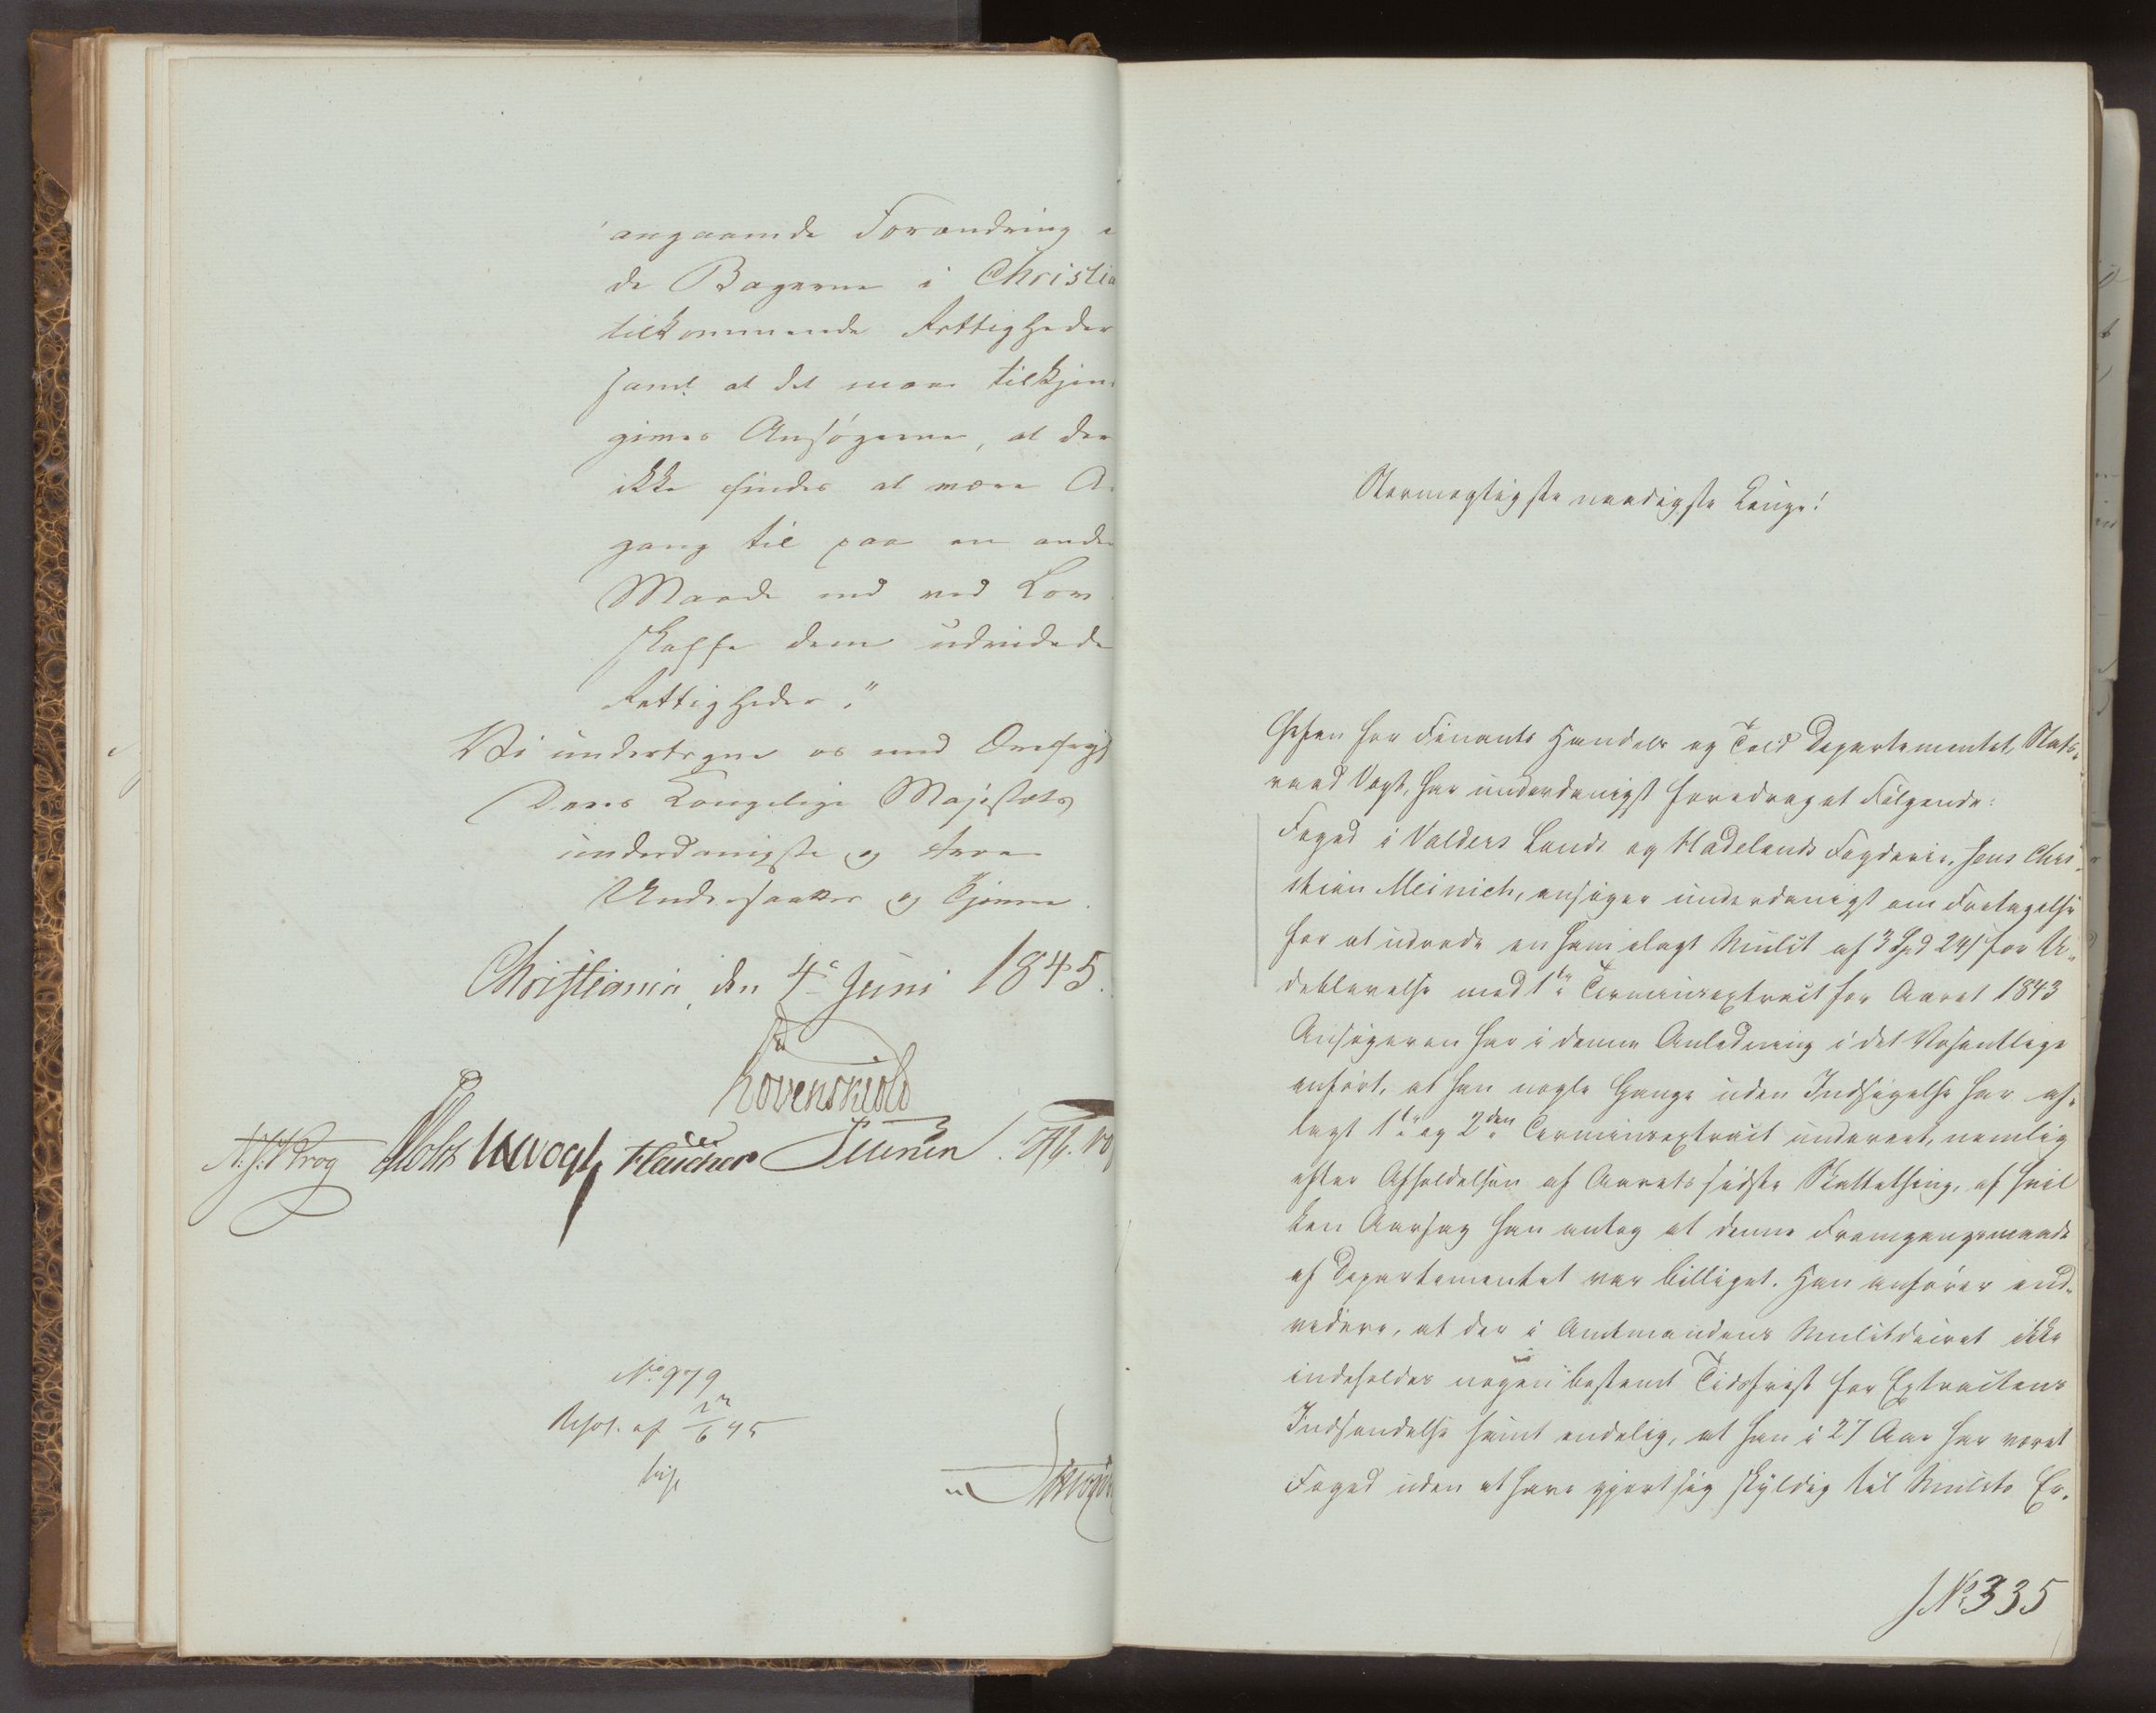 angaaende Forandring
de Bagerne i Christia
tilkommende Rettigheder
samt at det maae tilkjen-
gives Ansøgerne, at der
ikke findes at være A
gang til paa en anden
Maade end ved Lov
skaffe dem udvidede
Rettigheder."
Vi undertegne os med Ærefrygt
Deres Kongelige Majestæts
underdanigste og troe
Undersaatter og Tjenere.
Christiania, den 4de Juni 1845.
Løvenskiold
Krog Holst Vogt Fleischer Petersen
No 979
Resol. af 22/6 45
Stormægtigste naadigste Konge!
Chefen for Finants Handels og Told Departementet, Stats-
raad Vogt, har underdanigst foredraget Følgende:
Foged i Valders Lands og Hadelands Fogderie, Jens Chri-
stian Meinich, ansøger underdanigst om Fritagelse
for at udrede en ham ilagt Mulct af 3 Spd 24 s for U-
deblevelse med 1ste Terminsextract for Aaret 1843
Ansøgeren har i denne Anledning i det Væsentlige
anført, at han nogle Gange uden Indsigelse har af-
lagt 1ste og 2den Terminsextract undereet, nemlig
efter Afholdelsen af Aarets sidste Skattething, af hvil
ken Aarsag han antog at denne Fremgangsmaade
af Departementet var billiget. Han anfører end-
videre, at der i Amtmandens Mulctdecret ikke
indeholdes nogen bestemt Tidsfrist for Extractens
Indsendelse samt endelig, at han i 27 Aar har været
Foged uden at have gjort sig skyldig til Mulcts Er-
No 335